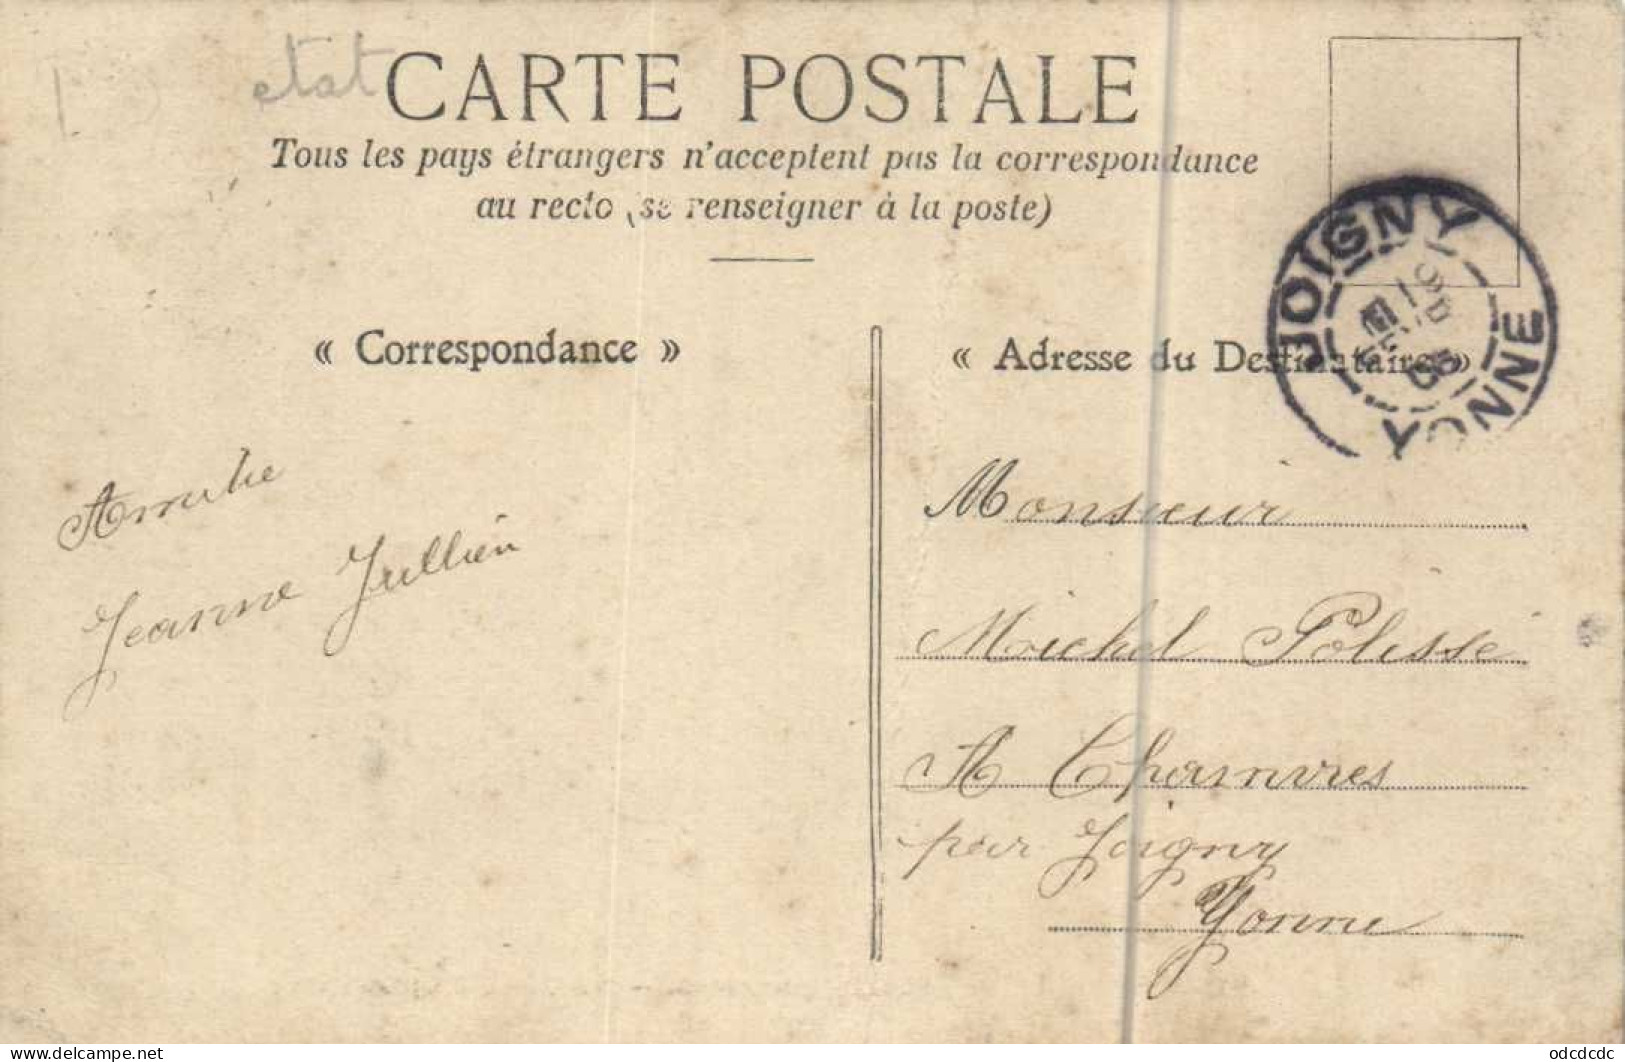 etat
CARTE POSTALE
Tous les pays étrangers n'acceptent pas la correspondance
au recto (se renseigner à la poste)
« Correspondance »
« Adresse du Destinataire »
JOIGNY
YONNE
Jeanne Jullien
Monsieur
Michel Polissé
A Chamvres
par Joigny
Yonne
delcampe.net
odcdcdc